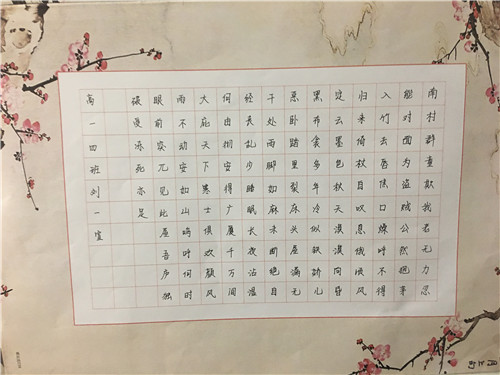 南村群童欺我老无力忍
能对面为盗贼公然抱茅
入竹去唇焦口燥呼不得
归来倚杖自叹息俄顷风
定云墨色秋天漠漠向昏
黑布衾多年冷似铁娇儿
恶卧踏里裂床头屋漏无
干处雨脚如麻未断绝自
经丧乱少睡眠长夜沾湿
何由彻安得广厦千万间
大庇天下寒士俱欢颜风
雨不动安如山呜呼何时
眼前突兀见此屋吾庐独
破受冻死亦足
高一四班刘一萱